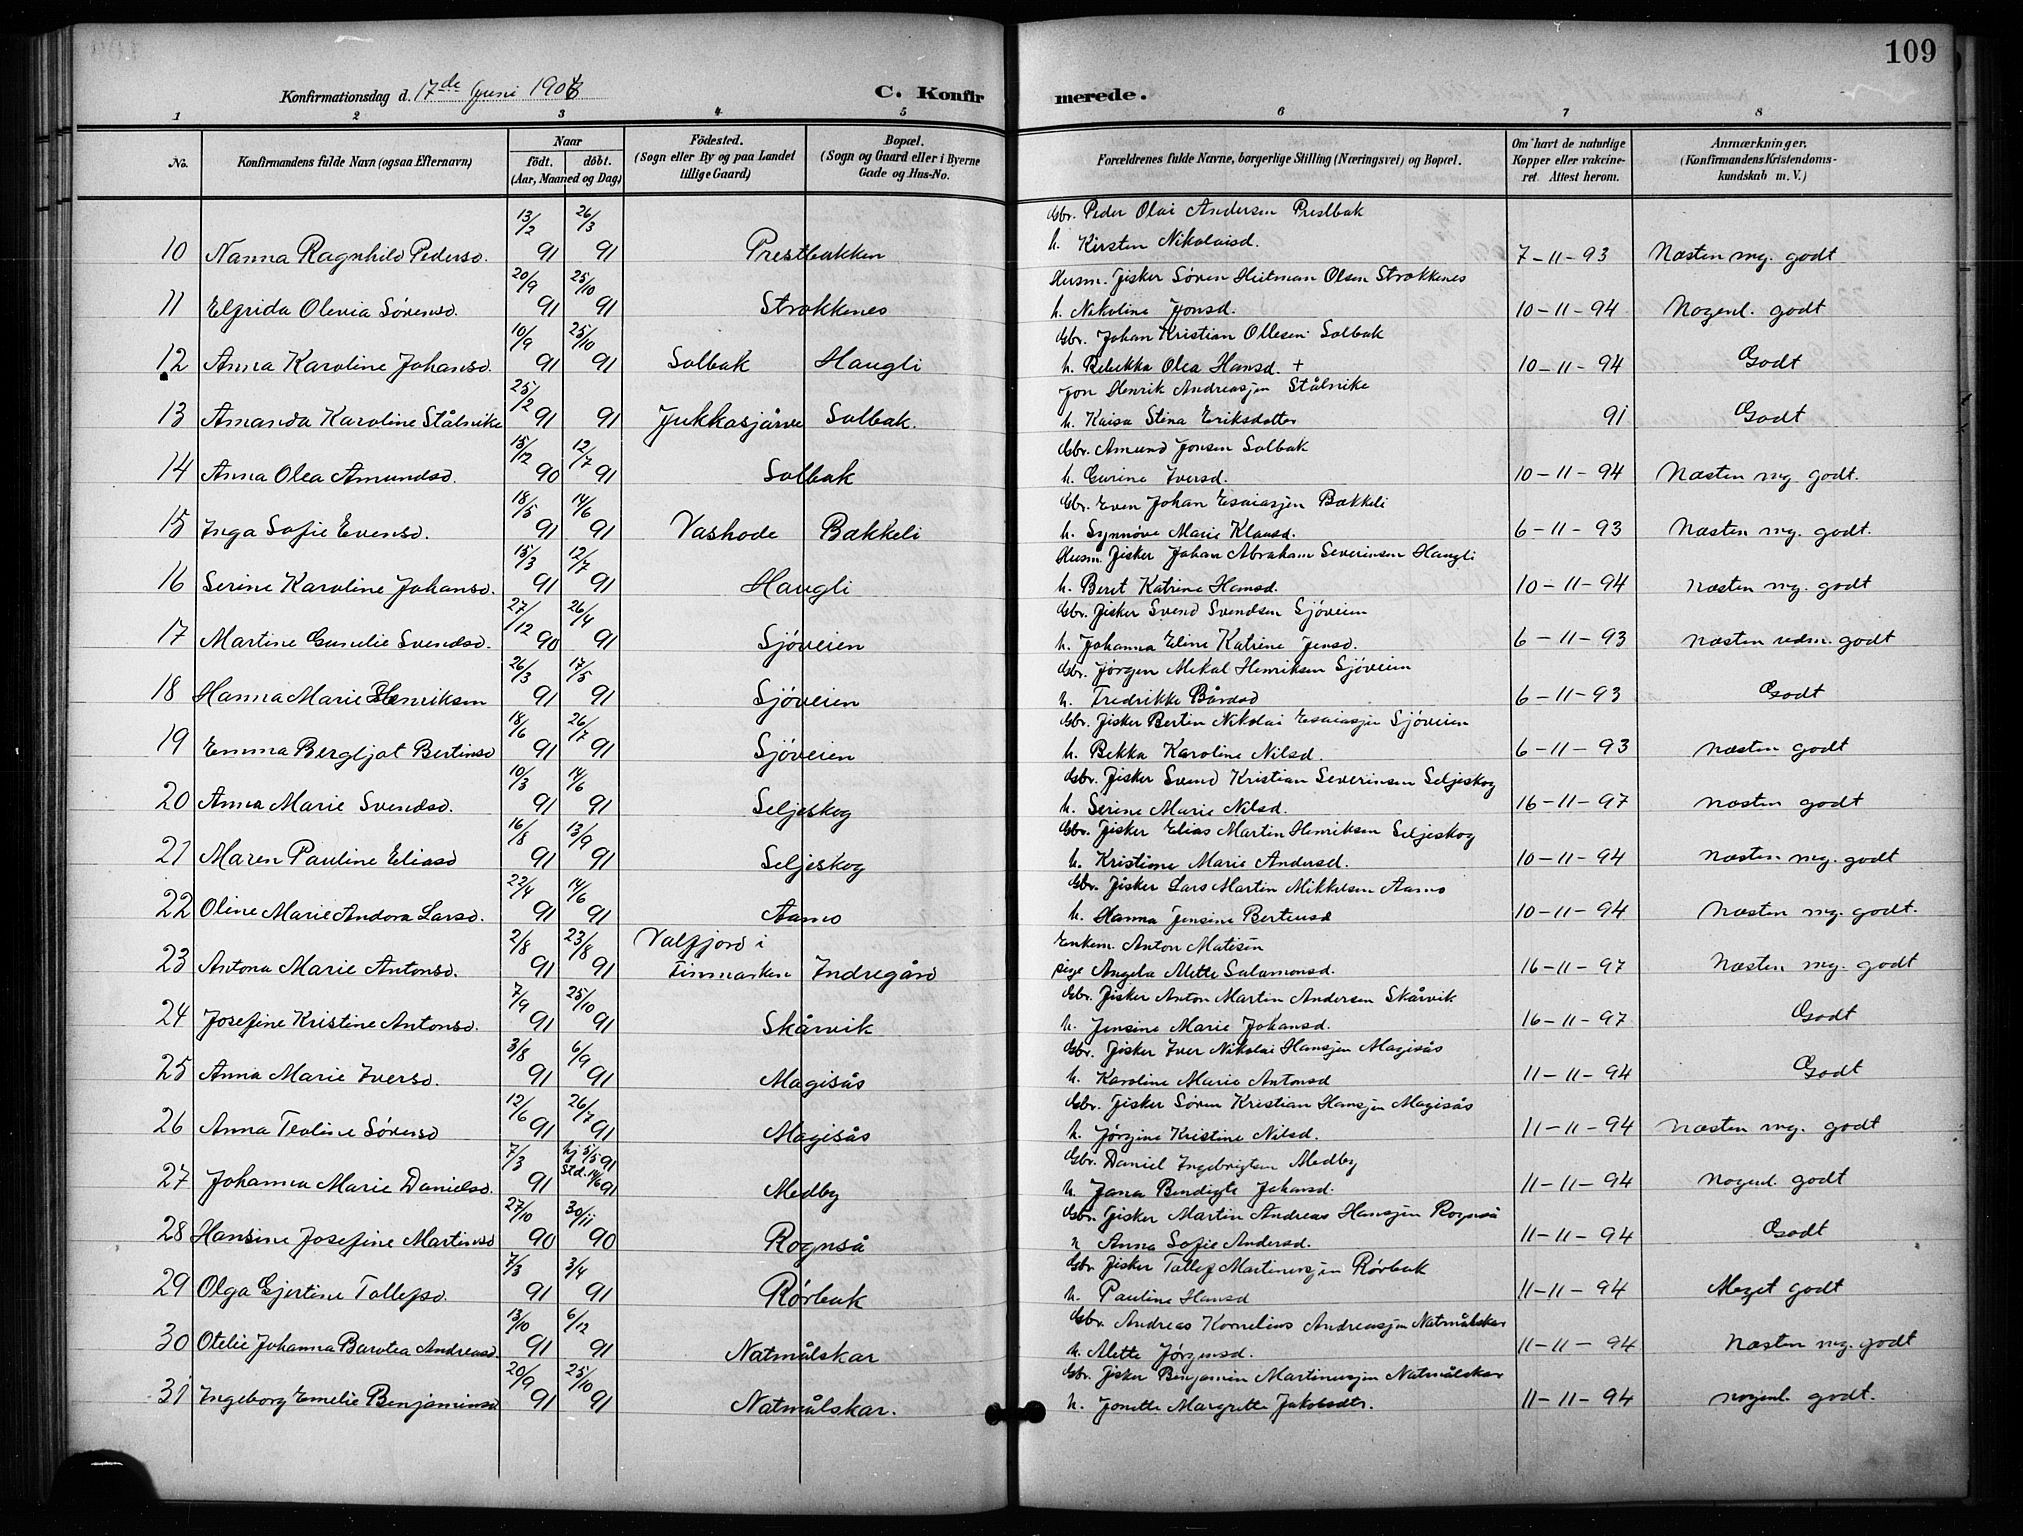 109
Konfirmationsdag d. 17de Juni 1906
C. Konfirmerede.
1 2 3 4 5 6 7 8
No.
Konfirmandens fulde Navn (ogsaa Efternavn)
Naar
födt. döbt.
(Aar, Maaned og Dag)
Födested.
(Sogn eller By og paa Landet
tillige Gaard)
Bopæl.
(Sogn og Gaard eller i Byerne
Gade og Hus-No.
Forældrenes fulde Navne, borgerlige Stilling (Næringsvei) og Bopæl.
Om havt de naturlige
Kopper eller vakcine-
ret. Attest herom.
Anmærkninger.
(Konfirmandens Kristendoms-
kundskab m. V.)
13/2 26/3 Gbr. Peder Olai Andersen Prestbak
10 Nanna Ragnhild Pedersd. 91 91 Prestbakken h. Kirsten Nikolaisd. 7-11-93 Næsten mg. godt
20/9 25/10 Husm. Fisker Søren Hietman Olsen Strokkenes
11 Elfrida Olevia Sørensd. 91 91 Strokkenes h. Nikoline Jonsd. 10-11-94 Nogenl. godt
10/9 25/10 Gbr. Johan Kristian Ollesen Solbak
12 Anna Karoline Johansd. 91 91 Solbak Haugli h. Rebekka Olea Hansd. + 10-11-94 Godt
25/2 Jon Henrik Andreasen Stålnike
13 Amanda Karoline Stålnike 91 91 Jukkasjärvi Solbak. h. Kaisa Stina Eriksdatter 91 Godt
15/12 12/7 Gbr. Amund Jonsen Solbak
14 Anna Olea Amundsd. 90 91 Solbak h. Gurine Iversd. 10-11-94 Næsten mg. godt.
18/5 14/6 Gbr. Even Johan Esaiassen Bækkeli
15 Inga Sofie Evensd. 91 91 Vashode Bækkeli h. Synnøve Marie Klausd. 6-11-93 Næsten mg. godt.
15/3 12/7 Husm. Fisker Johan Abraham Severinsen Haugli
16 Serine Karoline Johansd. 91 91 Haugli h. Beret Katrine Hansd. 10-11-94 Næsten mg. godt
27/12 26/4 Gbr. Fisker Svend Svendsen Sjöveien
17 Martine Gunelie Svendsd. 90 91 Sjöveien h. Johanna Eline Katrine Jensd. 6-11-93 Næsten udm. godt
26/3 17/5 Gbr. Jörgen Mekal Henriksen Sjöveien
18 Hanna Marie Henriksen 91 91 Sjöveien h. Fredrikke Bårdsd 6-11-93 Godt
18/6 26/7 Gbr. Fisker Bertin Nikolai Esaiassen Sjöveien
19 Emma Bergljot Bertinsd 91 91 Sjöveien h. Bekka Karoline Nilsd. 6-11-93 Næsten godt
10/3 14/6 Gbr. Fisker Svend Kristian Severinsen Seljeskog
20 Anna Marie Svendsd. 91 91 Seljeskog h. Serine Marie Nilsd. 16-11-97 Næsten godt
16/8 13/9 Gbr. Fisker Elias Martin Henriksen Seljeskog
21 Maren Pauline Eliasd 91 91 Seljeskog h. Kristine Marie Andersd. 10-11-94 Næsten mg. godt
22/4 14/6 Gbr. Fisker Lars Martin Mikkelsen Aamo
22 Oline Marie Andora Larsd. 91 91 Aamo h. Hanna Jensine Berteusd 10-11-94 Næsten mg. godt.
2/8 23/8 Valfjord i Enkem. Anton Matisen
23 Antona Marie Antonsd. 91 91 Finmarken Indregård pige Angela Mette Salamonsd. 16-11-97 Næsten mg. godt
7/9 25/10 Gbr. Fisker Anton Martin Andersen Skårvik
24 Josefine Kristine Antonsd. 91 91 Skårvik h. Jensine Marie Johansd. 16-11-97 Godt
3/8 6/9 Gbr. Fisker Iver Nikolai Hansen Magisås
25 Anna Marie Iversd. 91 91 Magisås h. Karoline Marie Antonsd 11-11-94 Godt
12/6 26/7 Gbr. Fisker Søren Kristian Hansen Magisås
26 Anna Teoline Sørensd 91 91 Magisås h. Jörgine Kristine Nilsd. 11-11-94 Næsten mg. godt
7/3 hj 5/5 91 Gbr. Daniel Ingebrigtsen Medby
27 Johanna Marie Danielsd. 91 Std. 14/6 91 Medby h. Jana Bendigte Johansd. 11-11-94 Nogenl. godt
27/10 30/11 Gbr. Fisker Martin Andreas Hansen Rognså
28 Hansine Josefine Martinsd 90 90 Rognså h Anna Sofie Andersd. 11-11-94 Godt
7/3 3/4 Gbr. Fisker Tollef Martinussen Rörbak
29 Olga Gjertine Tollefsd. 91 91 Rörbak h. Pauline Hansd 11-11-94 Meget godt
13/10 6/12 Gbr. Andreas Kornelius Andreassen Natmålskar
30 Otelie Johanna Barotea Andreasd. 91 91 Natmålskar h. Mette Jörgensd. 11-11-94 Næsten mg. godt
20/9 25/10 Gbr. Fisker Benjamin Martinussen Natmålskar
31 Ingeborg Emelie Benjaminsd 91 91 Natmålskar. h. Jonette Margrette Jakobsdtr. 11-11-94 nogenl. godt.